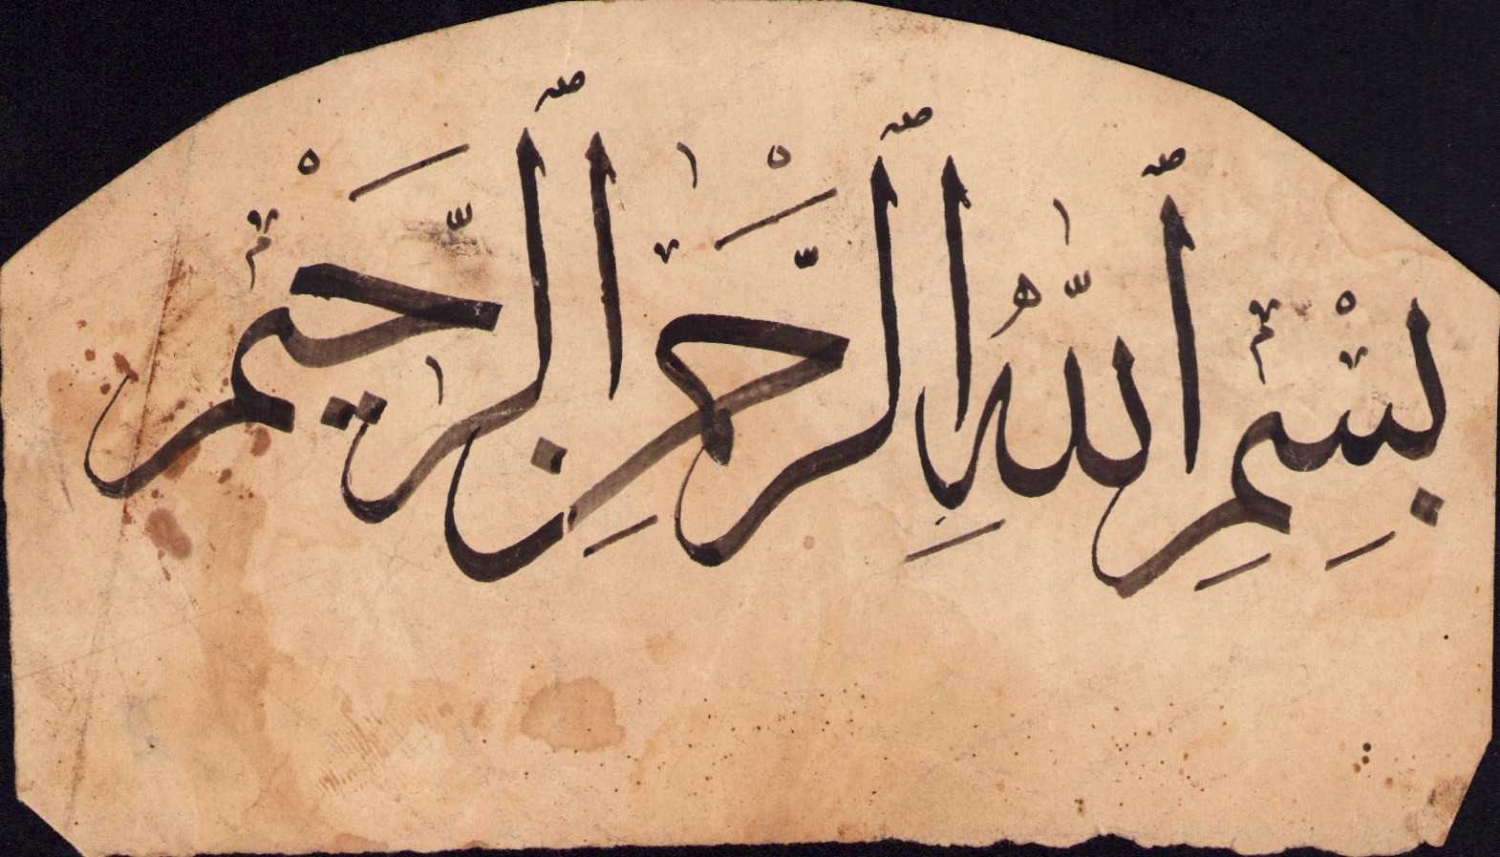 بِسْمِ ٱللّٰهِ ٱلرَّحْمٰنِ ٱلرَّحِيمْ